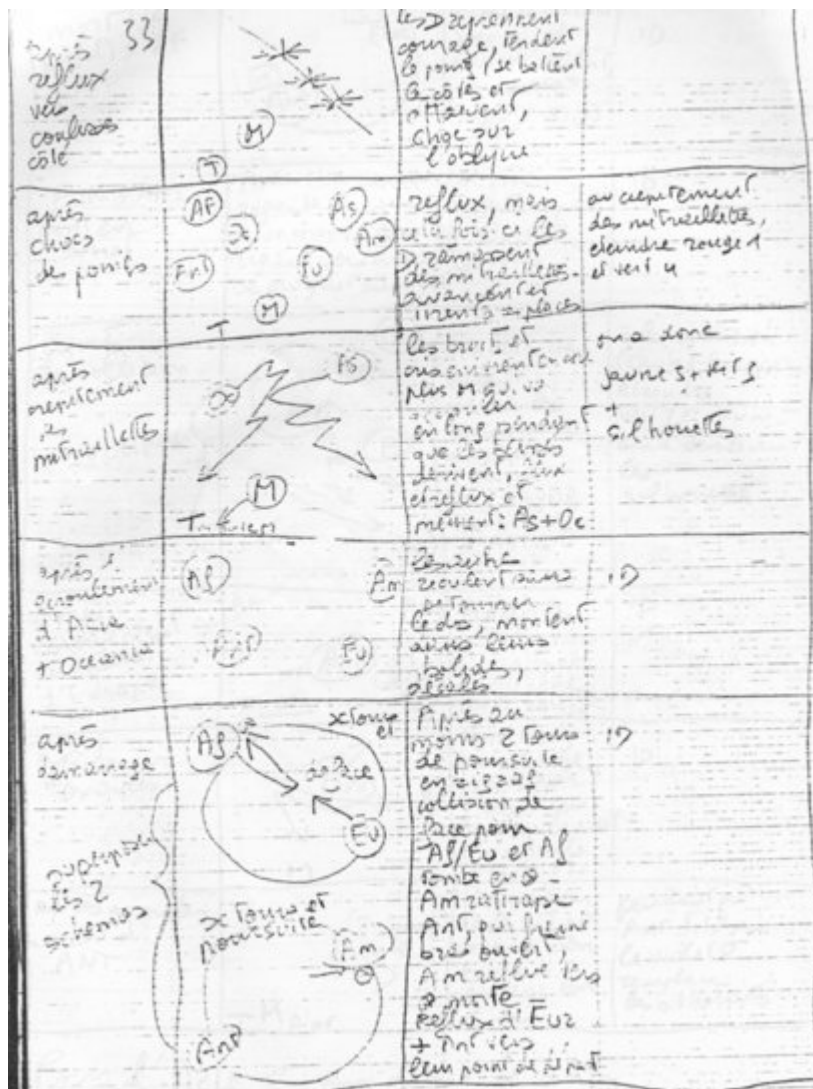 33
après
reflux
vers
coulisses
côté
M
T
les D reprennent
courage, tendent
le poing, se battent
le côtés et
attaquent,
choc sur
l'oblique
après
chocs
des poings
AF
As
Oc
Am
Ant
Eu
M
T
reflux, mais
cette fois-ci les
D ramassent
des mitraillettes
avancent et
au crépitement
des mitraillettes,
éteindre rouge 1
et vert 4
après
crépitement
des
mitraillettes
As
Oc
M
les bruits et
plus M qui va
en long pendant
que les
dérivent, flux
et reflux et
meurent : As + Oc
on a donc
jaune 5 + vert 3
+
silhouettes
après l'
écroulement
d'Asie
+ Océanie
Af
Am
Ant
Eu
les autres
reculent sans
le dos, montent
dans leurs
bolides,
décalés
ID
après
démarrage
superposer
les 2
schémas
Af
x tours
et
de face
Eu
x tours et
poursuite
Am
Ant
Après au
moins 2 tours
de poursuite
en zigzag
collision de
face pour
Af/Eu et Af
tombe en
Am rattrape
Ant, qui freine
bras ouvert,
Am reflue vers
Reflux d'Eur
+ Ant vers
leur point de départ
ID